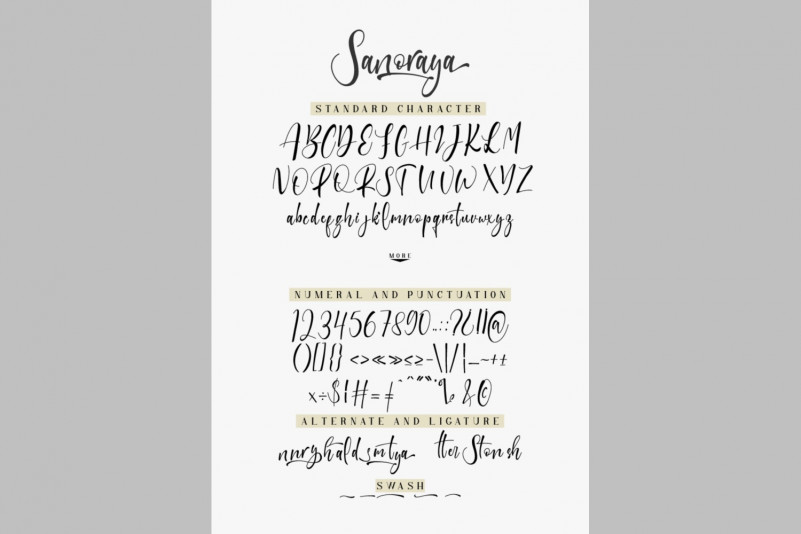 Sanoraya
STANDARD CHARACTER
ABCDEFGHIJKLM
NOPQRSTUVWXYZ
abcdefghijklmnopqrstuvwxyz
MORE
NUMERAL AND PUNCTUATION
1234567890..:;?¿!¡@
()[]{} <>«»≤≥-\|/¦_~+±
×÷$¦#=≠ &©
ALTERNATE AND LIGATURE
SWASH